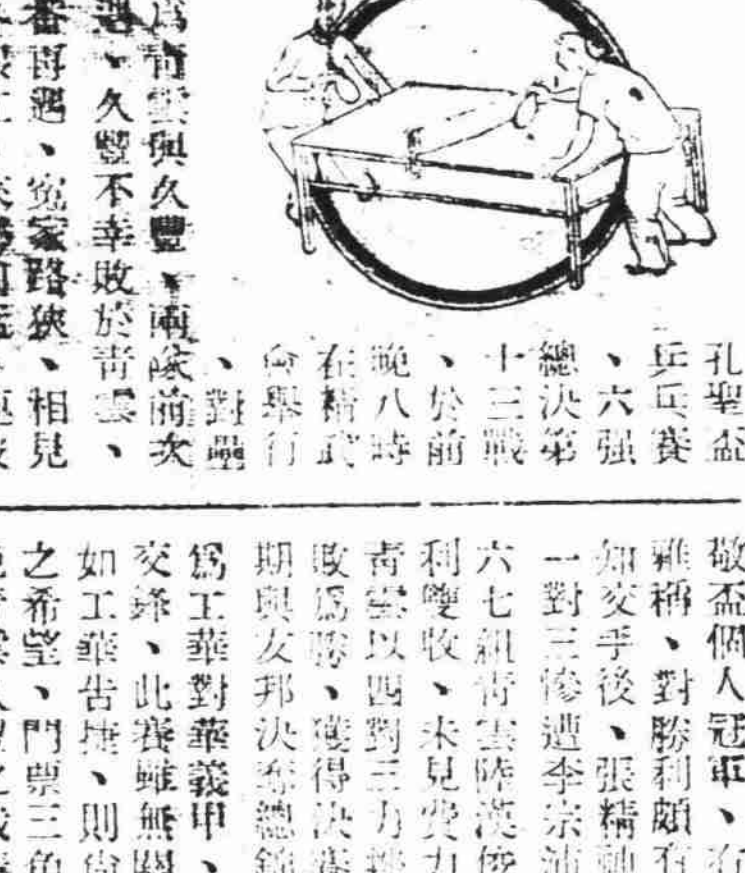 孔聖盃
乒乓賽
、六强
總决第
十三戰
、於前
晚八時
在精武
會舉行
、對壘
爲靑雲與久豐、兩隊前次
遇、久豐不幸敗於靑雲、
再遇、寃家路狹、相見
敬盃個人冠軍、
雖稱、對勝利頗有
如交手後、張精
一對三慘遭李宗沛
六七組靑雲陸漢俊
利雙收、未見費力
靑雲以四對三力
敗爲勝、獲得决賽
期與友邦决奪總錦
爲工華對華義甲、
交鋒、此賽雖無關
如工華告捷、則尙
之希望、門票三角